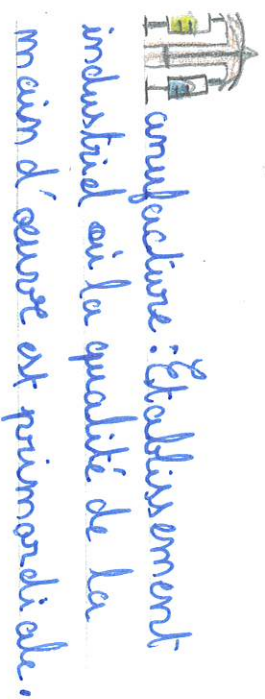 Manufacture : Établissement
industriel où la qualité de la
main d'œuvre est primordiale.